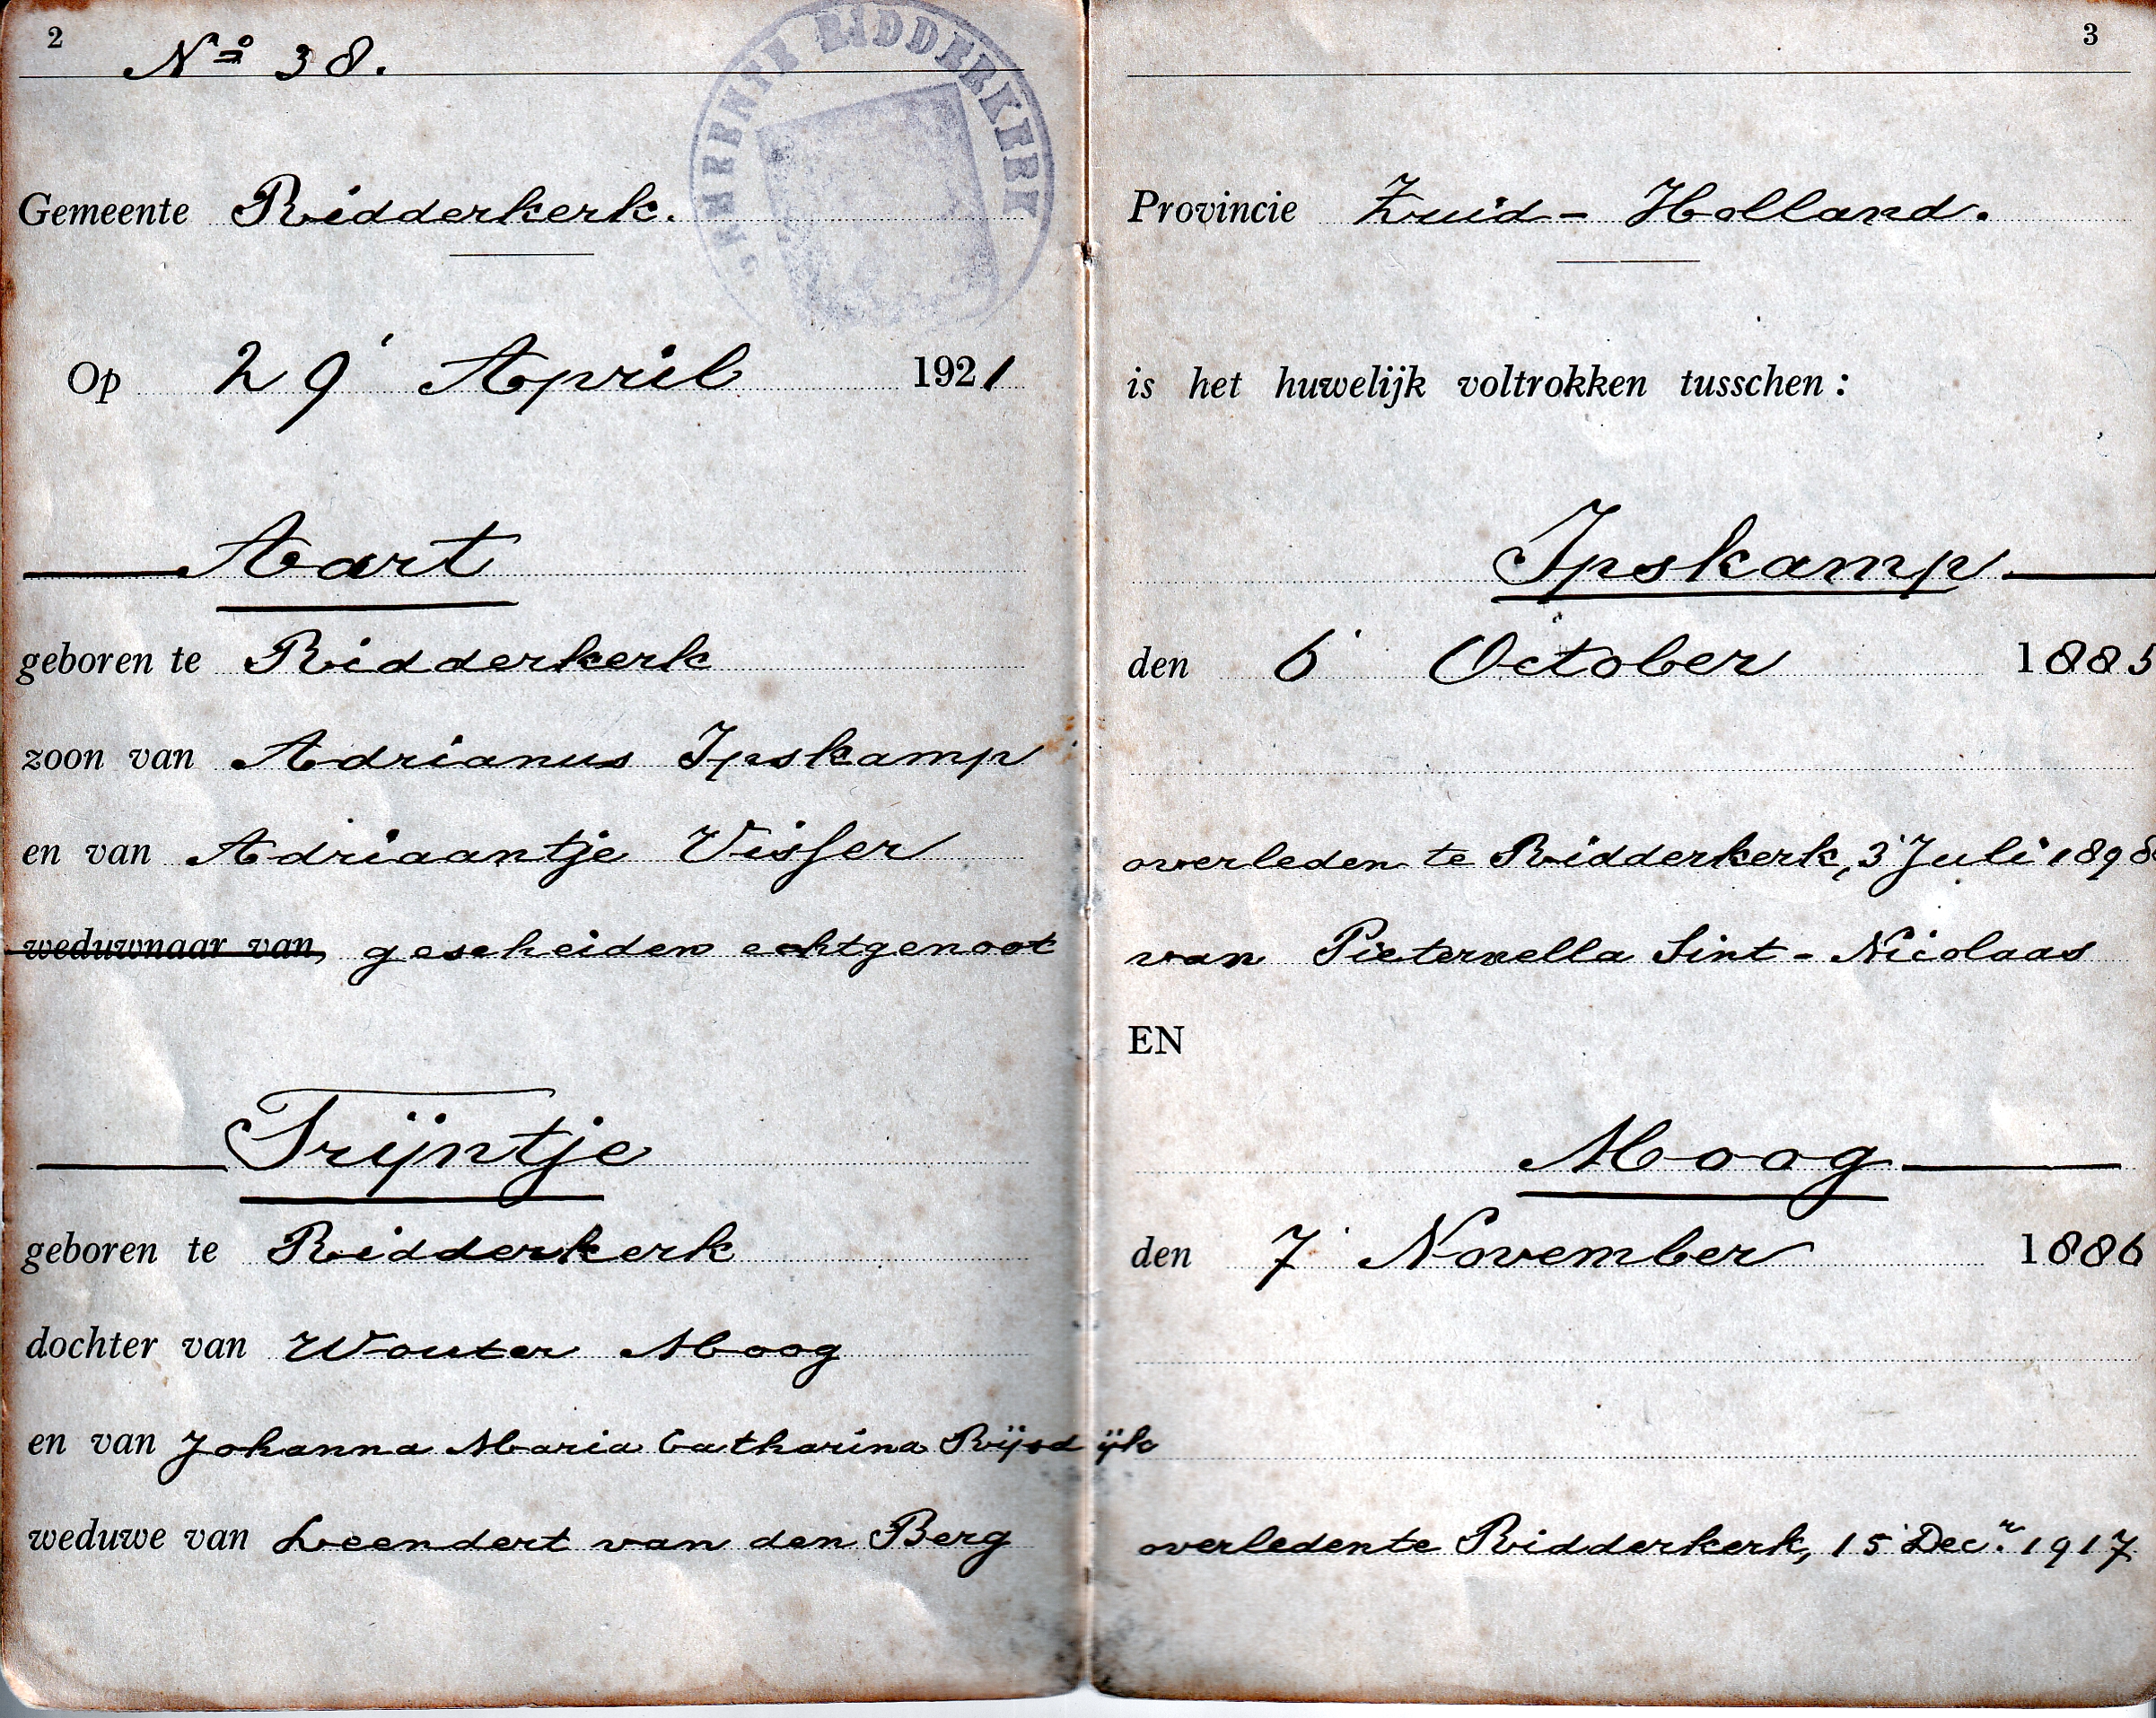 2
Nº 38.
GEMEENTE RIDDERKERK
Gemeente Ridderkerk.
Op 29 April 1921
Aart
geboren te Ridderkerk
zoon van Adrianus Ipskamp
en van Adriaantje Visser
weduwnaar van, gescheiden echtgenoot
Trijntje
geboren te Ridderkerk
dochter van Wouter Moog
en van Johanna Maria Catharina Rijsdijk
weduwe van Leendert van den Berg
3
Provincie Zuid-Holland.
is het huwelijk voltrokken tusschen:
Ipskamp
den 6 October 1885
overleden te Ridderkerk, 3 Juli 1898
van Pieternella Sint-Nicolaas
EN
Moog
den 7 November 1886
overleden te Ridderkerk, 15 Decr. 1917